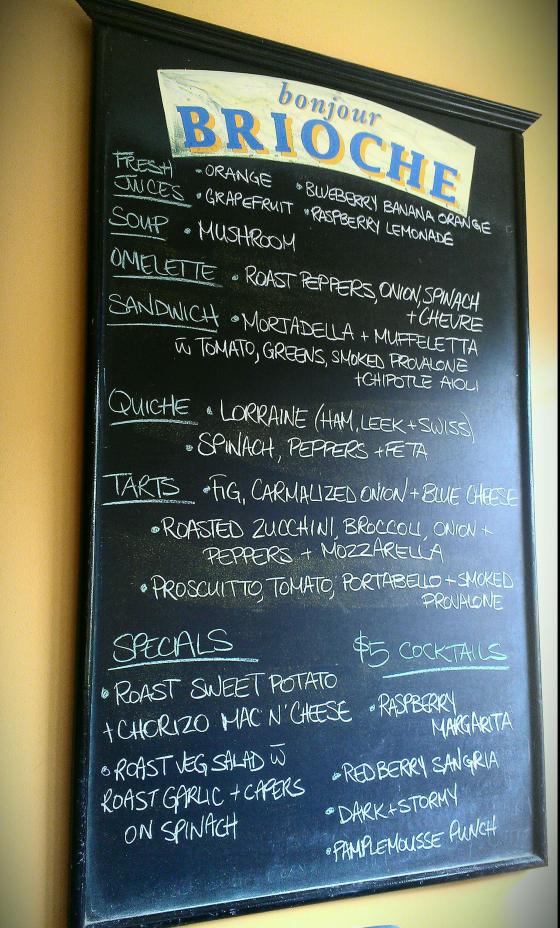 bonjour
BRIOCHE
FRESH JUICES
• ORANGE • BLUEBERRY BANANA ORANGE
• GRAPEFRUIT • RASPBERRY LEMONADE
SOUP • MUSHROOM
OMELETTE • ROAST PEPPERS, ONION, SPINACH
+ CHEVRE
SANDWICH • MORTADELLA + MUFFELETTA
W̄ TOMATO, GREENS, SMOKED PROVALONE
+ CHIPOTLE AIOLI
QUICHE • LORRAINE (HAM, LEEK + SWISS)
• SPINACH, PEPPERS + FETA
TARTS • FIG, CARMALIZED ONION + BLUE CHEESE
• ROASTED ZUCCHINI, BROCCOLI, ONION +
PEPPERS + MOZZARELLA
• PROSCUITTO, TOMATO, PORTABELLO + SMOKED
PROVALONE
SPECIALS
• ROAST SWEET POTATO
+ CHORIZO MAC 'N' CHEESE
• ROAST VEG SALAD W̄
ROAST GARLIC + CAPERS
ON SPINACH
$5 COCKTAILS
• RASPBERRY
MARGARITA
• RED BERRY SANGRIA
• DARK + STORMY
• PAMPLEMOUSSE PUNCH